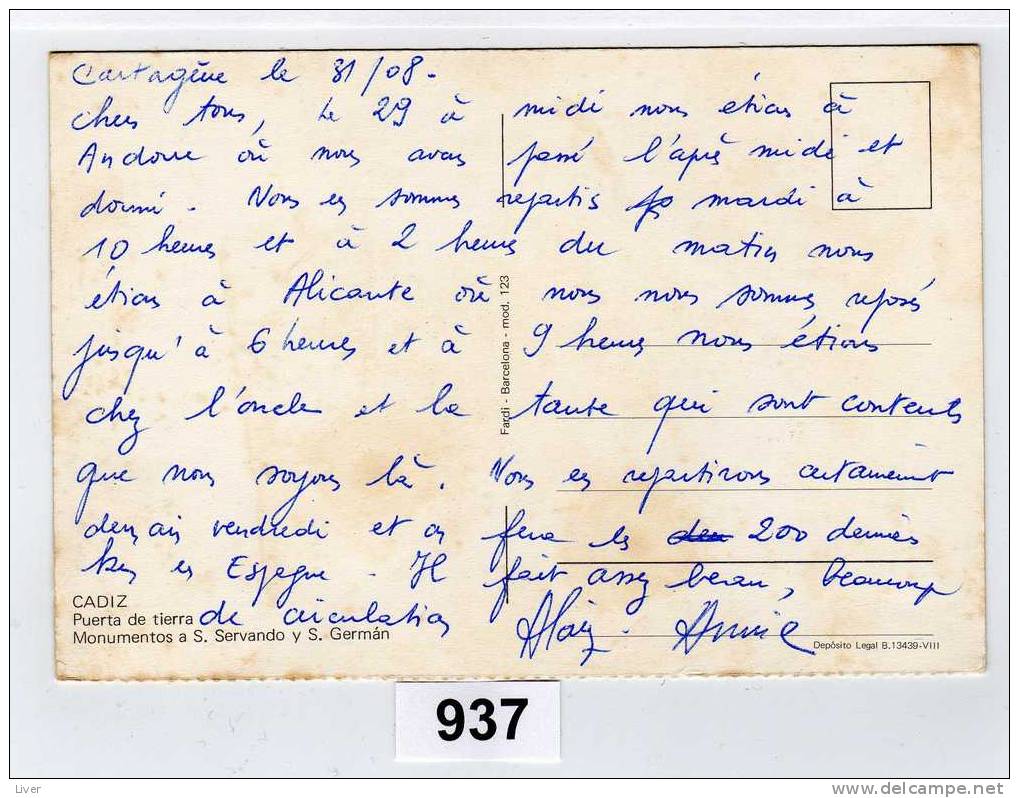 Cartagène le 31/08.
chers tous, Le 29 à midi nous étions à
Andorre où nous avons passé l'après midi et
dormi. Nous en sommes repartis mardi à
10 heures et à 2 heures du matin nous
étions à Alicante où nous nous sommes reposés
jusqu'à 6 heures et à 9 heures nous étions
chez l'oncle et la tante qui sont contents
que nous soyons là. Nous en repartirons certainement
demain vendredi et on fera les 200 derniers
kms en Espagne. Il fait assez beau, beaucoup
de circulation
Alain. Annie
CADIZ
Puerta de tierra
Monumentos a S. Servando y S. Germán
Fardi - Barcelona - mod. 123
Depósito Legal B.13439-VIII
937
Liver
delcampe.net